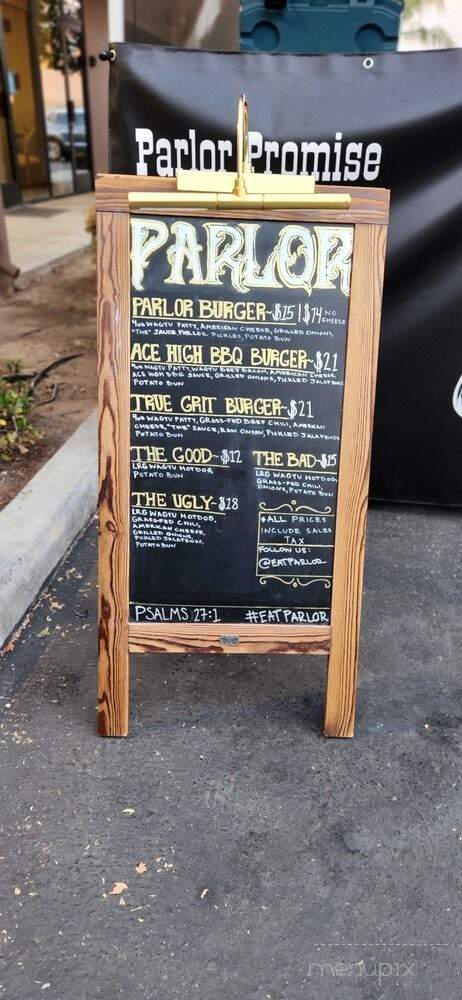 Parlor Promise
PARLOR
PARLOR BURGER~$15 | $14 NO CHEESE
4oz WAGYU PATTY, AMERICAN CHEESE, GRILLED ONIONS,
"THE" SAUCE, PARLOR PICKLES, POTATO BUN
ACE HIGH BBQ BURGER~$21
4oz WAGYU PATTY, WAGYU BEEF BACON, AMERICAN CHEESE
ACE HIGH BBQ SAUCE, GRILLED ONIONS, PICKLED JALAPENOS
POTATO BUN
TRUE GRIT BURGER~$21
4oz WAGYU PATTY, GRASS-FED BEEF CHILI, AMERICAN
CHEESE, "THE" SAUCE, RAW ONION, PICKLED JALAPENOS
POTATO BUN
THE GOOD~$12
LRG WAGYU HOTDOG,
POTATO BUN
THE BAD~$15
LRG WAGYU HOTDOG,
GRASS-FED CHILI,
ONIONS, POTATO BUN
THE UGLY~$18
LRG WAGYU HOTDOG,
GRASS-FED CHILI,
AMERICAN CHEESE,
GRILLED ONIONS,
PICKLED JALAPENOS,
POTATO BUN
*ALL PRICES
INCLUDE SALES
TAX
FOLLOW US:
@EATPARLOR
PSALMS 27:1 #EATPARLOR
menupix